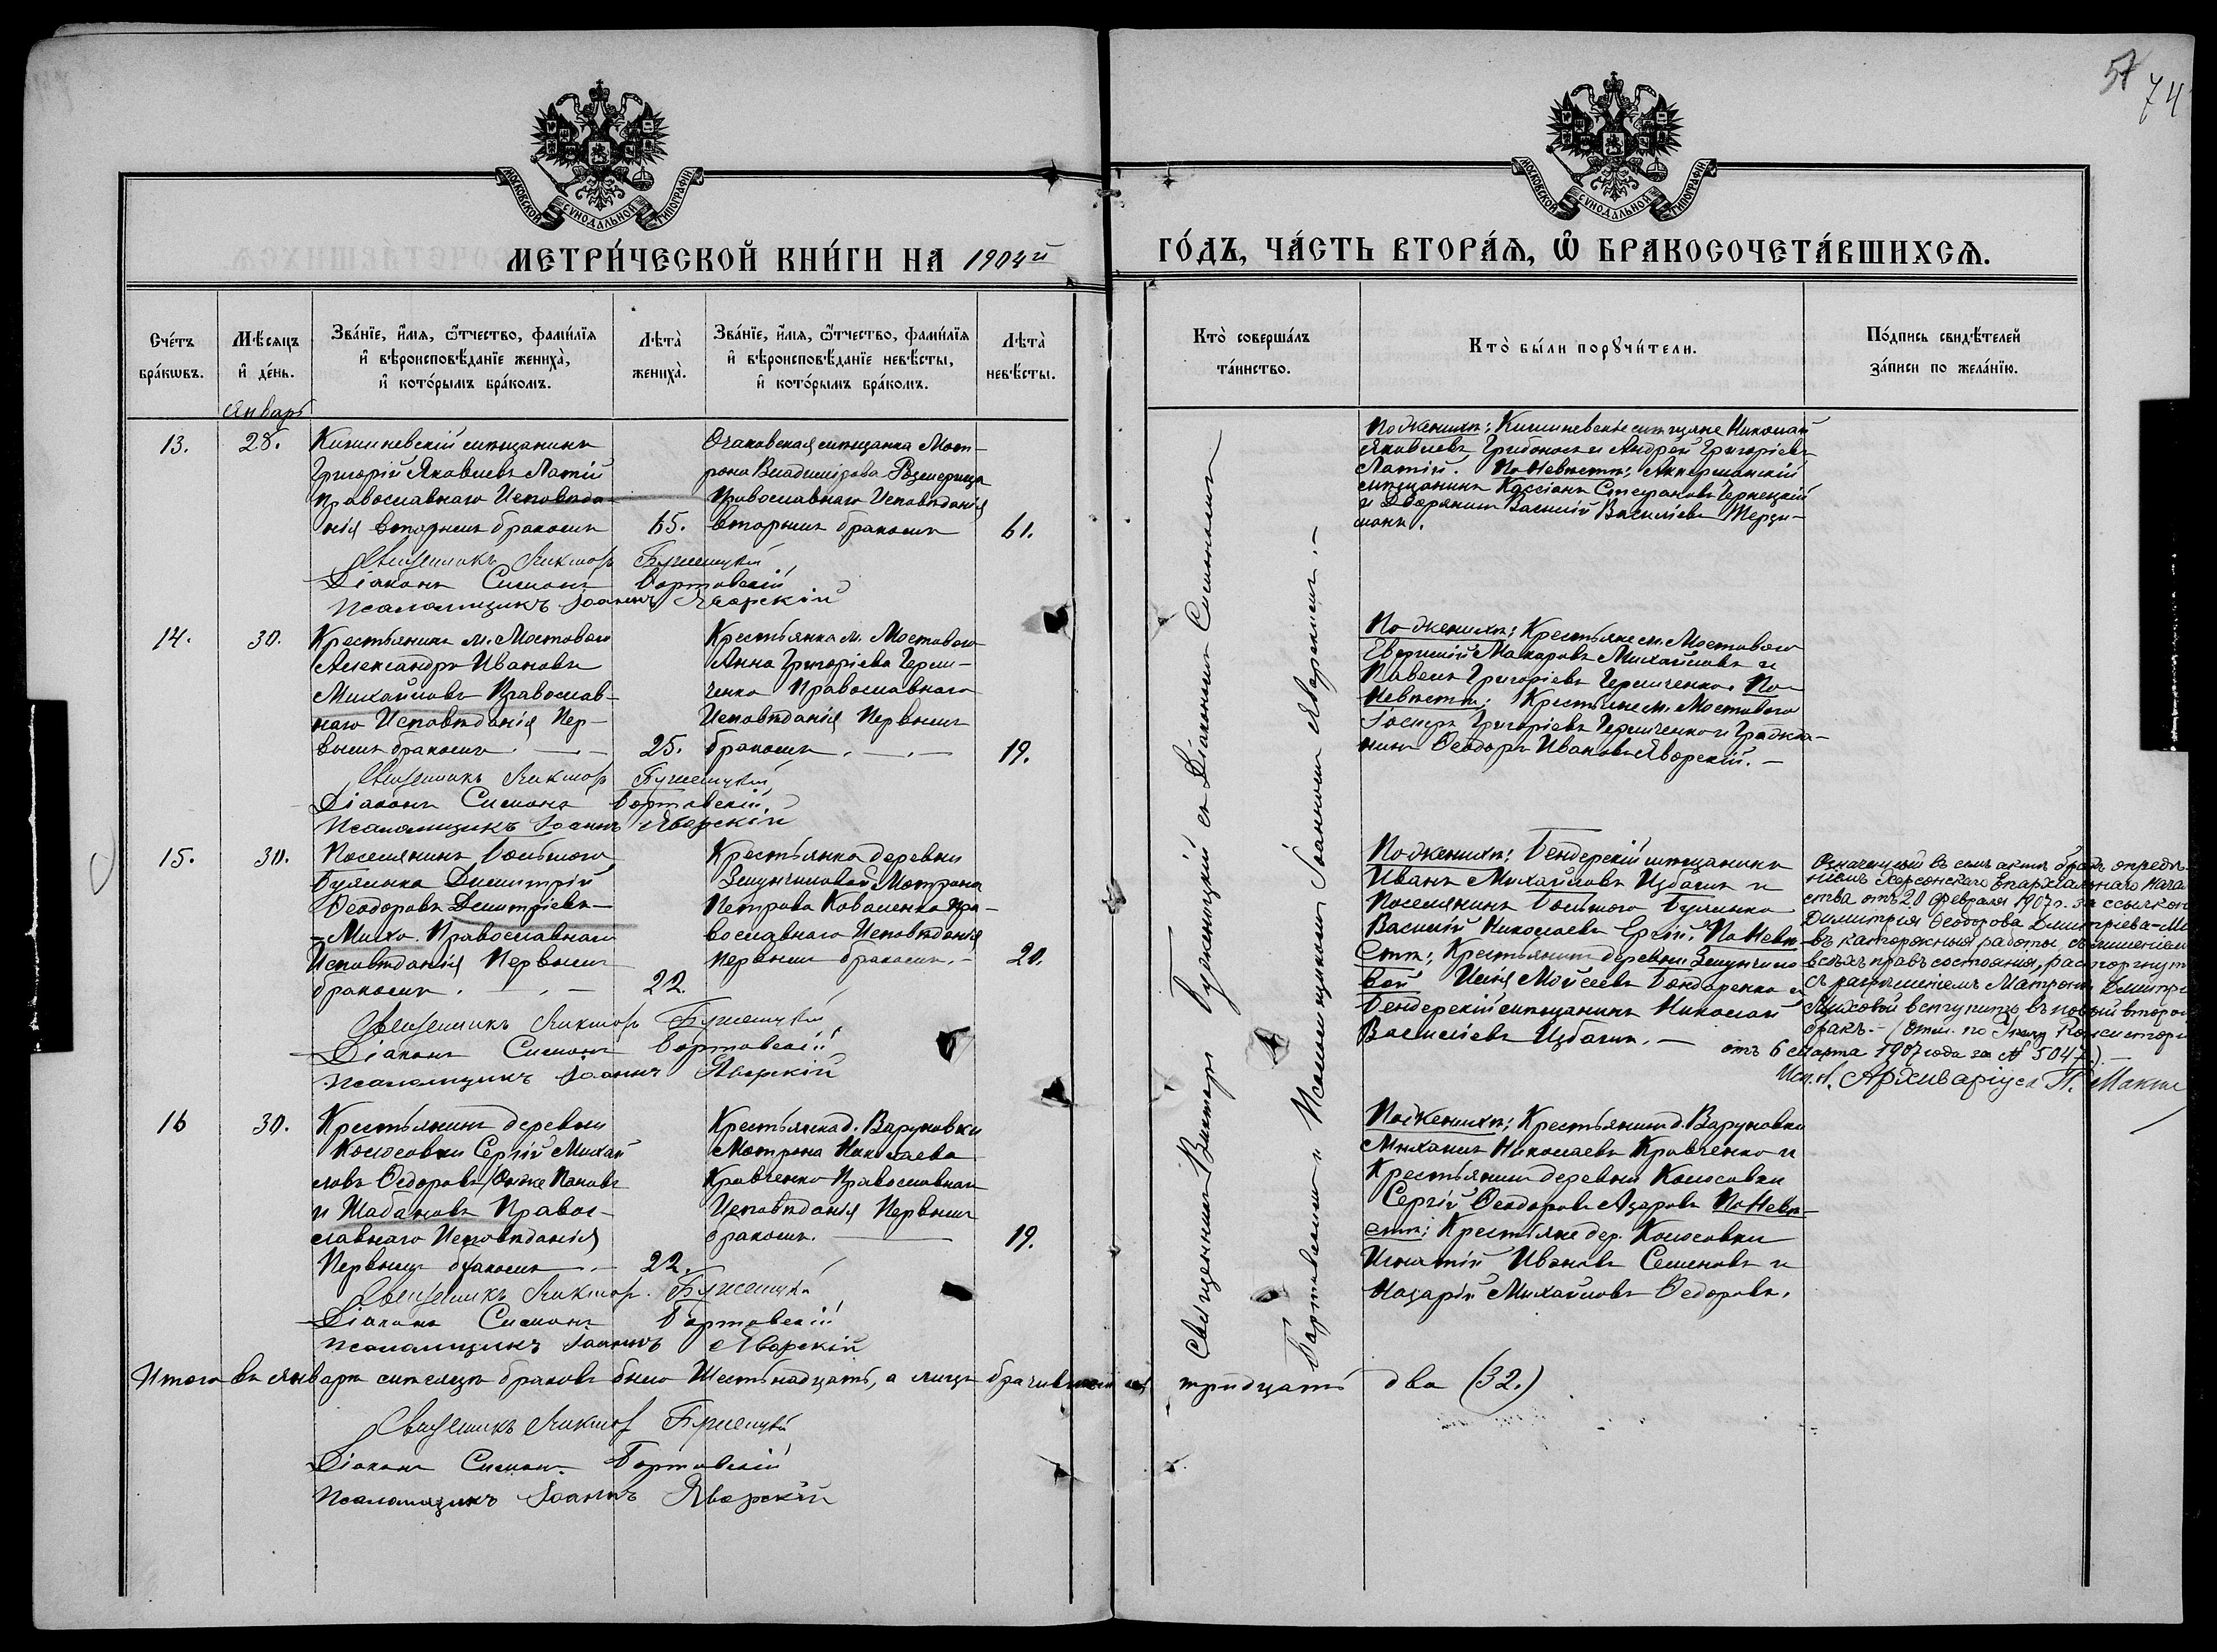 57
74
МОСКОВСКОЙ СѴНОДАЛЬНОЙ ТИПОГРАФІИ
МОСКОВСКОЙ СѴНОДАЛЬНОЙ ТИПОГРАФІИ
МЕТРИ́ЧЕСКОЙ КНИ́ГИ НА 1904й
ГО́ДЪ, ЧА́СТЬ ВТОРА́Ѧ, Ѿ БРАКОСОЧЕТА́ВШИХСѦ.
Сче́тъ бра́кѡвъ.
Мѣ́сяцъ и҆ де́нь.
Зва́нїе, и҆́мѧ, ѻ҆́тчество, фами́лїѧ
и҆ вѣроисповѣ́данїе жениха̀,
и҆ кото́рымъ бра́комъ.
Лѣта̀ жениха̀.
Зва́нїе, и҆́мѧ, ѻ҆́тчество, фами́лїѧ
и҆ вѣроисповѣ́данїе невѣ́сты,
и҆ кото́рымъ бра́комъ.
Лѣта̀ невѣ́сты.
Кто̀ соверша́лъ та́инство.
Кто̀ бы́ли порꙋчи́тели.
По́дпись свидѣ́телей за́писи по жела́нїю.
Январь
13.
28.
Кишиневскій мѣщанинъ
Григорій Яковлевъ Латій
Православнаго Исповѣда-
нія вторымъ бракомъ
65.
Очаковская мѣщанка Мот-
рона Владимірова
Православнаго Исповѣданія
вторымъ бракомъ
61.
По Женихѣ: Кишиневскіе мѣщане Николай
Яковлевъ Грибоносъ и Андрей Григорьевъ
Латій. По Невѣстѣ: Аккерманскій
мѣщанинъ Кассіанъ Стефановъ Чернецкій
и Дворянинъ Василій Васильевъ Терзи-
манъ.
Священникъ Викторъ Бужницкій
Діаконъ Симонъ Бортовскій
Псаломщикъ Іоаннъ Яворскій
14.
30.
Крестьянинъ м. Мостового
Александръ Ивановъ
Михайловъ Православ-
наго Исповѣданія Пер-
вымъ бракомъ. — —
25.
Крестьянка м. Мостового
Анна Григоріева Герги-
ченко Православнаго
Исповѣданія Первымъ
бракомъ. —
19.
По Женихѣ: Крестьяне м. Мостового
Евфимій Макаровъ Михайловъ и
Павелъ Григоріевъ По
Невѣстѣ: Крестьяне м. Мостового
Іосифъ Григоріевъ и Гражда-
нинъ Ѳеодоръ Ивановъ Яворскій. —
Священникъ Викторъ Бужницкій
Діаконъ Симонъ Бортовскій
Псаломщикъ Іоаннъ Яворскій
15.
30.
Поселянинъ Большого
Буялыка Димитрій
Ѳеодоровъ Димитріевъ-
-Михо. Православнаго
Исповѣданія Первымъ
бракомъ. — —
22.
Крестьянка деревни
Мотрона
Петрова Коваленко Пра-
вославнаго Исповѣданія
первымъ бракомъ. —
20.
По Женихѣ: Бендерскій мѣщанинъ
Иванъ Михайловъ Избашъ и
Поселянинъ Большого Буялыка
Василій Николаевъ По Невѣ-
стѣ: Крестьянинъ деревни
Илія Моисеевъ Бондаренко и
Бендерскій мѣщанинъ Николай
Васильевъ Избашъ. —
Означенный въ семъ актѣ бракъ опредѣ-
ніемъ Херсонскаго Епархіальнаго Нача
ства отъ 20 Февраля 1907 г. за ссылкою
Димитрія Ѳеодорова Димитріева-Ми
въ каторжныя работы, съ лишеніемъ
всѣхъ правъ состоянія, расторгнутъ
съ разрѣшеніемъ Матронѣ Димитрі
Миховой вступить въ новый второй
бракъ. — (Отм. по Указу Консисторі
отъ 6 Марта 1907 года за № 5047). —
Исп. д. Архиваріуса П.
Священникъ Викторъ Бужницкій
Діаконъ Симонъ Бортовскій
Псаломщикъ Іоаннъ Яворскій
16
30.
Крестьянинъ деревни
Колосовки Сергій Михай
ловъ Ѳедоровъ, онже Пановъ
и Шабановъ Правос-
славнаго Исповѣданія
Первымъ бракомъ —
22.
Крестьянка д. Варуновки
Мотрона Николаева
Кравченко Православнаго
Исповѣданія Первымъ
бракомъ. —
19.
По Женихѣ: Крестьянинъ д. Варуновки
Михаилъ Николаевъ Кравченко и
Крестьянинъ деревни Колосовки
Сергій Ѳеодоровъ Азаровъ По Невѣ-
стѣ: Крестьяне дер. Колосовки
Игнатій Ивановъ Семеновъ и
Назарій Михайловъ Ѳедоровъ.
Священникъ Викторъ Бужницкій
Діаконъ Симонъ Бортовскій
Псаломщикъ Іоаннъ Яворскій
Священникъ Викторъ Бужницкій съ Діакономъ Симономъ
Бортовскимъ и Псаломщикомъ Іоанномъ Яворскимъ. —
Итого въ Январѣ мѣсяцѣ браковъ было Шестьнадцать, а лицъ тридцать два (32.)
Священникъ Викторъ Бужницкій
Діаконъ Симонъ Бортовскій
Псаломщикъ Іоаннъ Яворскій